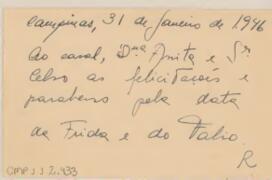 Campinas, 31 de Janeiro de 1946
Ao casal, Dna Anita e Sr
Celso as felicitações e
parabens pela data
da Frida e do Fabio.
R
CMP.1.1.2.933